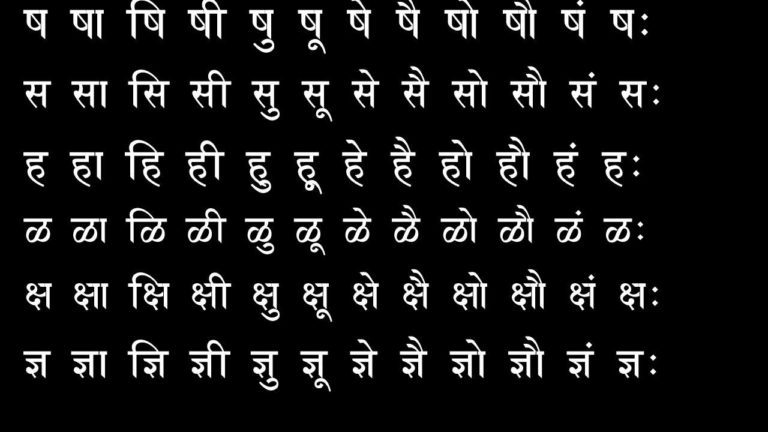 ष षा षि षी षु षू षे षै षो षौ षं षः
स सा सि सी सु सू से सै सो सौ सं सः
ह हा हि ही हु हू हे है हो हौ हं हः
ळ ळा ळि ळी ळु ळू ळे ळै ळो ळौ ळं ळः
क्ष क्षा क्षि क्षी क्षु क्षू क्षे क्षै क्षो क्षौ क्षं क्षः
ज्ञ ज्ञा ज्ञि ज्ञी ज्ञु ज्ञू ज्ञे ज्ञै ज्ञो ज्ञौ ज्ञं ज्ञः